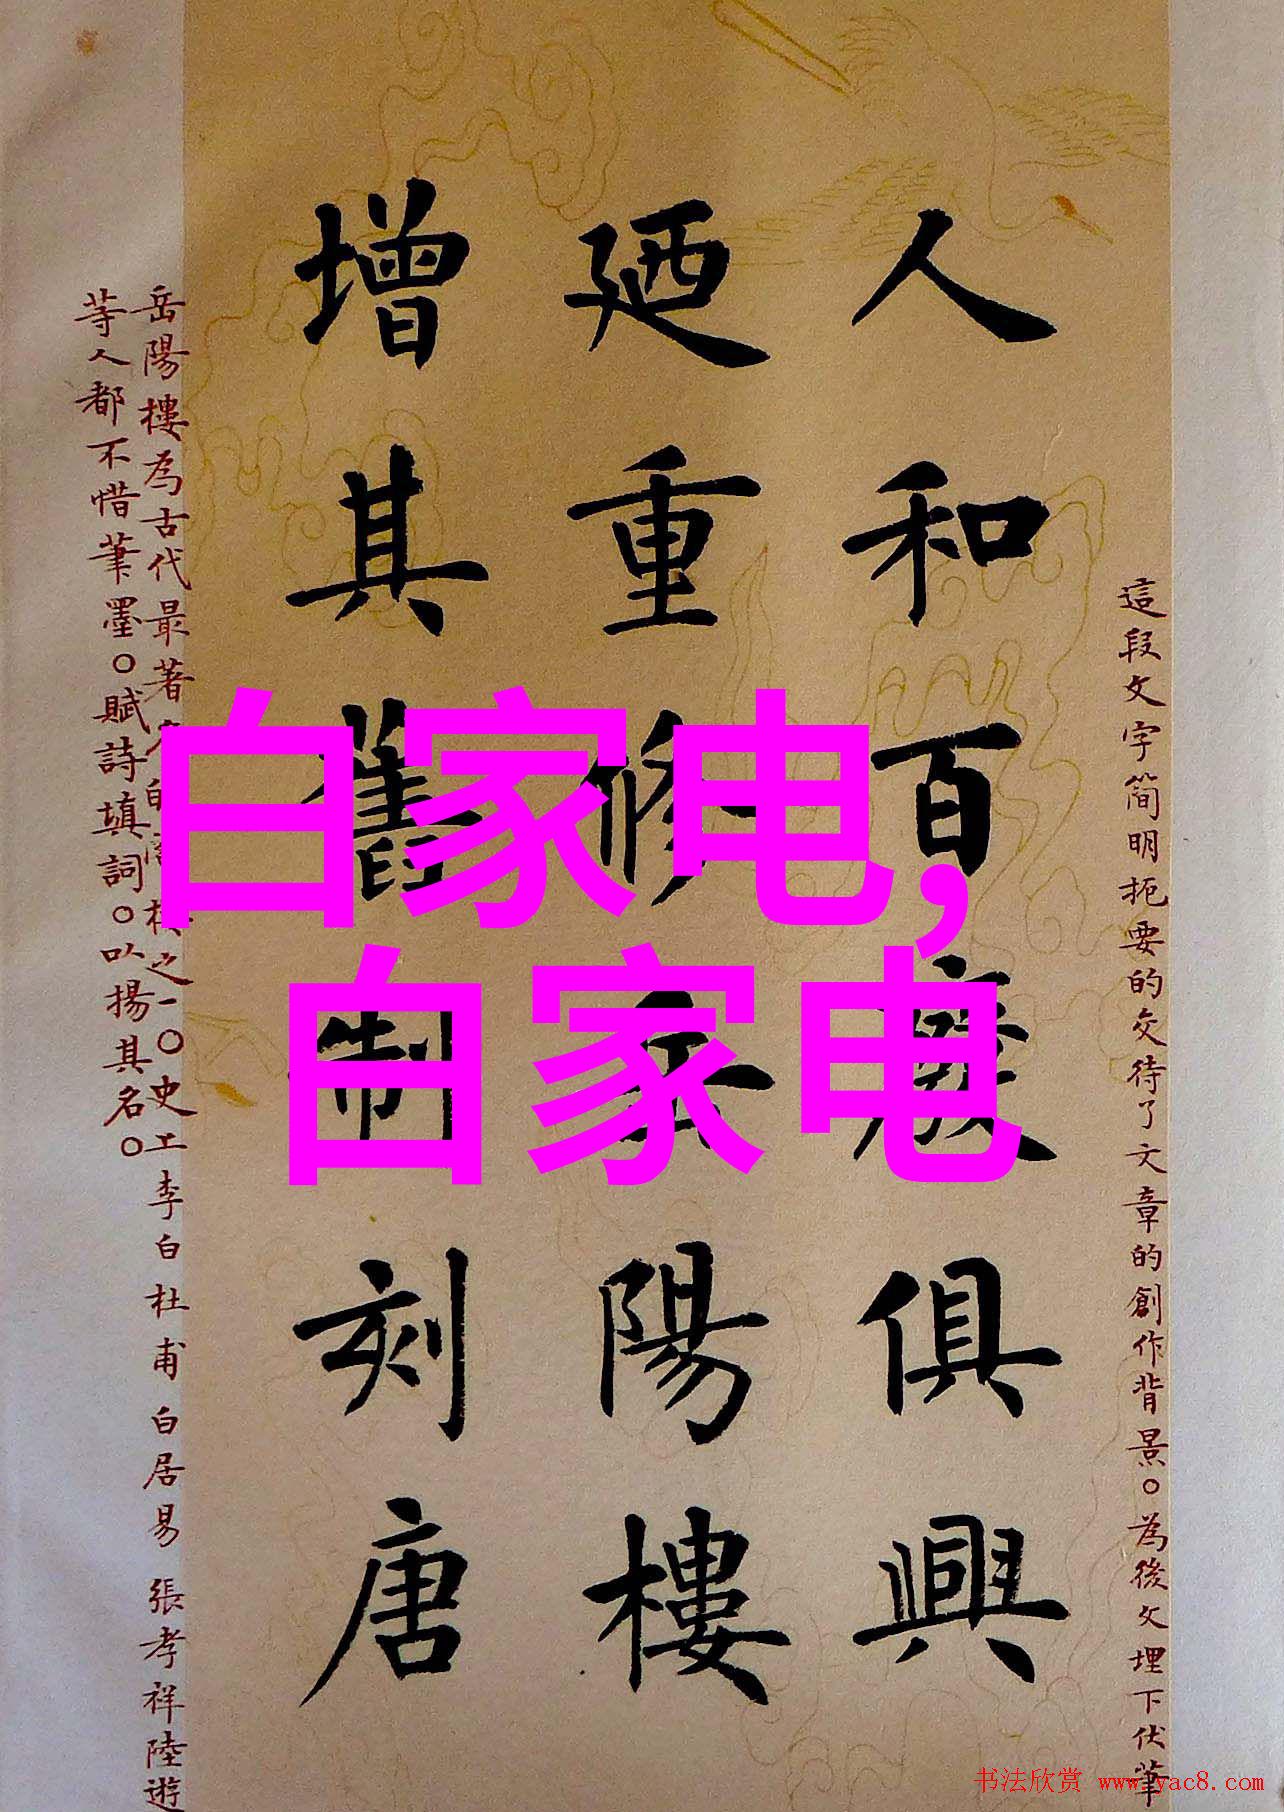 白家电,
白家电
這段文字简明扼要的交待了文章的創作背景。為後文埋下伏筆
人和百廢俱興
廼重修岳陽樓
增其舊制刻唐
岳陽樓為古代最著名的樓之一。史上李白杜甫白居易張孝祥陸遊
等人都不惜筆墨。賦詩填詞。以揚其名。
书法欣赏 www.yac8.com